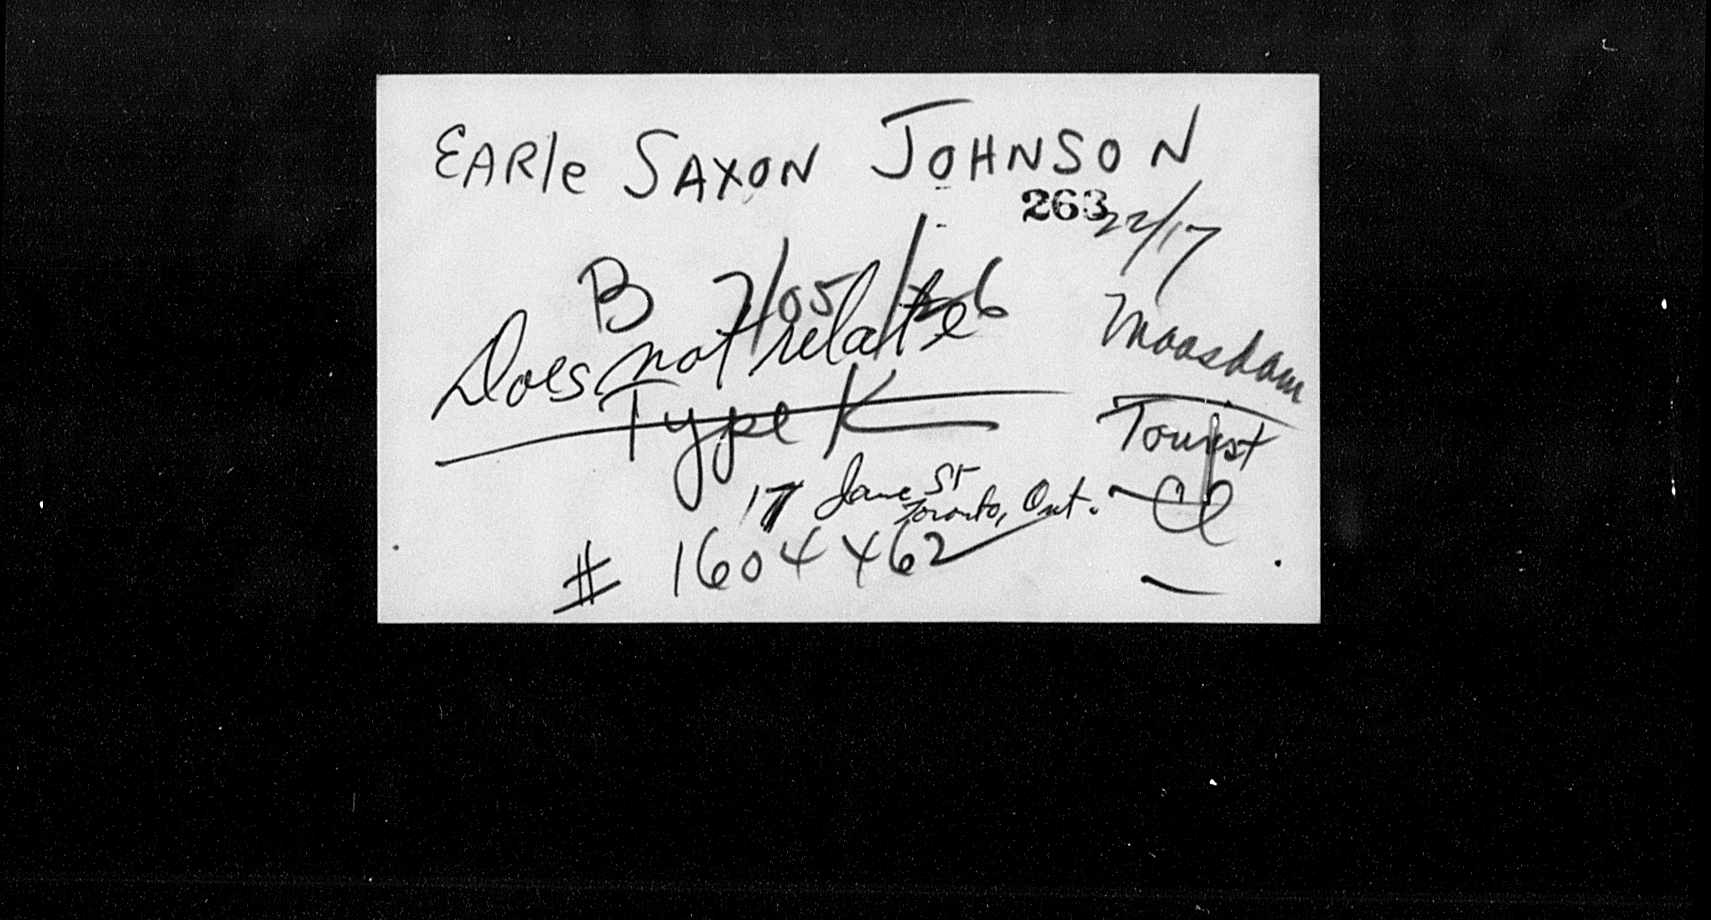 EARle SAXON JOHNSON
263
22/17
B 7/05/26
Does not relate
Maasdam
Type K
Tourist
17 Jane St
Toronto, Ont.
Cl
# 1604462